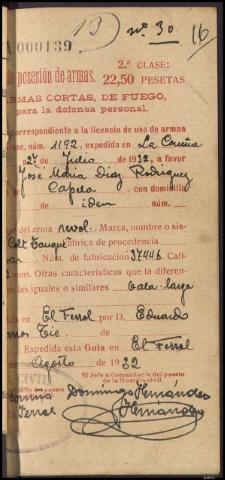 13) nº. 30 16
A 000139
2.ª CLASE:
posesión de armas. 22,50 PESETAS
ARMAS CORTAS, DE FUEGO,
para la defensa personal.
correspondiente a la licencia de uso de armas
clase, núm. 1192, expedida en La Coruña
a 27 de Julio de 1932, a favor
José Maria Diaz Rodriguez
Capelo, con domicilio
de idem núm.
del arma revol. Marca, nombre o sis-
Colt fábrica de procedencia
Núm. de fabricación 37446. Cali-
mms. Otras características que la diferen-
las iguales o similares bala larga
en El Ferrol por D. Eduardo
de
Expedida esta Guía en El Ferrol
Agosto de 1932
El Jefe o Comandante del puesto
de la Guardia civil
Domingo Hernández
Ferrol Hernández